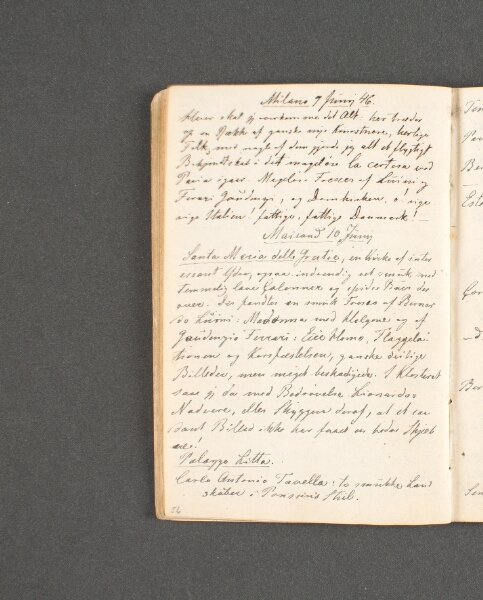 Milano 9 Junij 46.
Hvor skal jeg overkomme det Alt. her træder
op en Række af ganske nye Kunstnere, herlige
Folk, med nogle af dem gjorde jeg alt et flygtigt
Bekjendtskab i det mageløse la certosa ved
Pavia igaar. Mageløse Frescer af Luini og
Ferrari Gaudenzi, og Domkirken, o! rige
rige Italien! fattige, fattige Danmark! —
Mailand 10 Junij
Santa Maria delle Gratie, en Kirke af inter
essant Ydre, ogsaa indvendig ret smuk med
temmelig lave Colonner og spidse Buer der
over. Der fandtes en smuk Fresco af Bernar
do Luini: Madonna med Helgene og af
Gaudenzio Ferrari: Ecce Homo, Flaggela
tionen og Korsfæstelsen, ganske deilige
Billeder, men meget beskadigede. I Klosteret
saae jeg da med Bedrøvelse Lionardos
Nadvere, eller Skyggen deraf, at et saa
dant Billed ikke har faaet en bedre Skjæb
ne!
Palazzo Litta.
Carlo Antonio Tavella: to smukke Land
skaber i Poussins Stil.
26